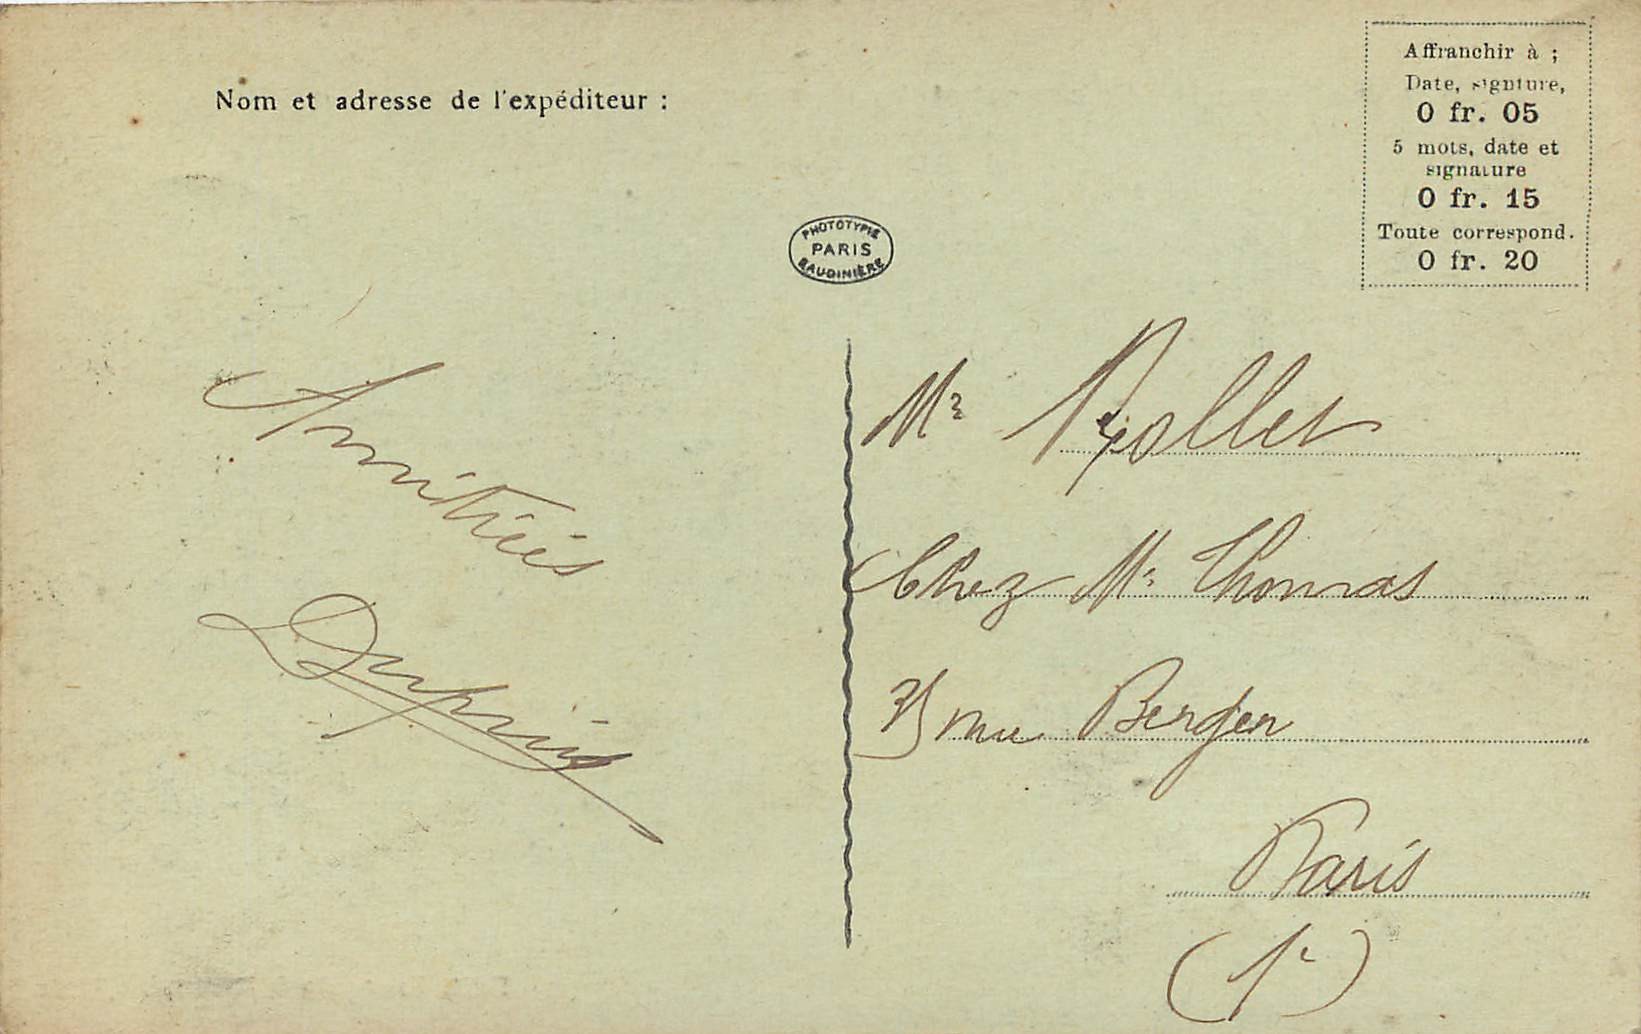 Nom et adresse de l'expéditeur :
Affranchir à ;
Date, signture,
0 fr. 05
5 mots, date et
signature
0 fr. 15
Toute correspond.
0 fr. 20
PHOTOTYPIE
PARIS
BAUDINIÈRE
Amitiés
Dupuis
Mr Rollet
Chez Mr Thomas
rue Berger
Paris
(1r)